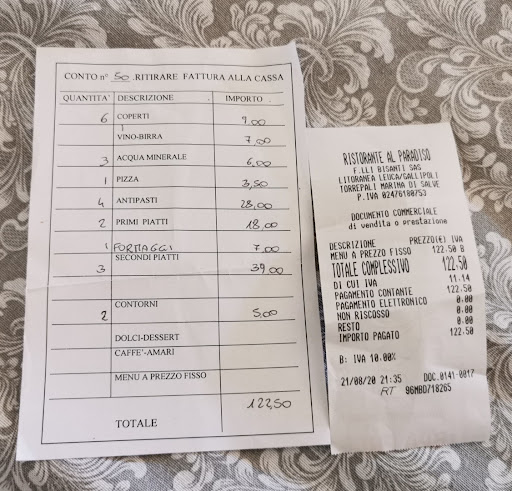 CONTO n° 50 .RITIRARE FATTURA ALLA CASSA
QUANTITA' DESCRIZIONE IMPORTO
6 COPERTI 9,00
1 VINO-BIRRA 7,00
3 ACQUA MINERALE 6,00
1 PIZZA 3,50
4 ANTIPASTI 28,00
2 PRIMI PIATTI 18,00
1 FORMAGGI 7,00
3 SECONDI PIATTI 39,00
2 CONTORNI 5,00
DOLCI-DESSERT
CAFFE'-AMARI
MENU A PREZZO FISSO
122,50
TOTALE
RISTORANTE AL PARADISO
F.LLI BISANTI SAS
LITORANEA LEUCA/GALLIPOLI
TORREPALI MARINA DI SALVE
P.IVA 02476180753
DOCUMENTO COMMERCIALE
di vendita o prestazione
DESCRIZIONE PREZZO(€) IVA
MENU A PREZZO FISSO 122.50 B
TOTALE COMPLESSIVO 122.50
DI CUI IVA 11.14
PAGAMENTO CONTANTE 122.50
PAGAMENTO ELETTRONICO 0.00
NON RISCOSSO 0.00
RESTO 0.00
IMPORTO PAGATO 122.50
B: IVA 10.00%
21/08/20 21:35 DOC.0141-0017
RT 96MBD718265